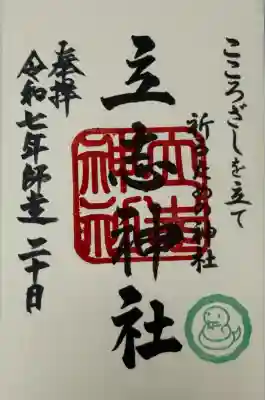 こころざしを立て
祈るための神社
立志神社
立志神社
奉拝
令和七年師走二十日